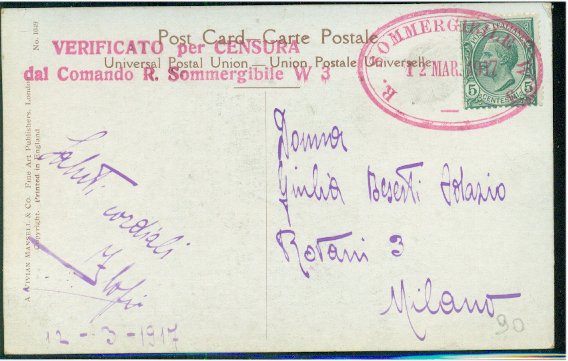 No. 1049
Post Card—Carte Postale
Universal Postal Union — Union Postale Universelle
VERIFICATO per CENSURA
dal Comando R. Sommergibile W 3
R. SOMMERGIBILE W 3
12 MAR 1917
5 CENTESIMI 5
Saluti
cordiali
12-3-1917
Donna
Giulia
Rovani 3
Milano
90
A. VIVIAN MANSELL & CO. Fine Art Publishers, London
Copyright. Printed in England.